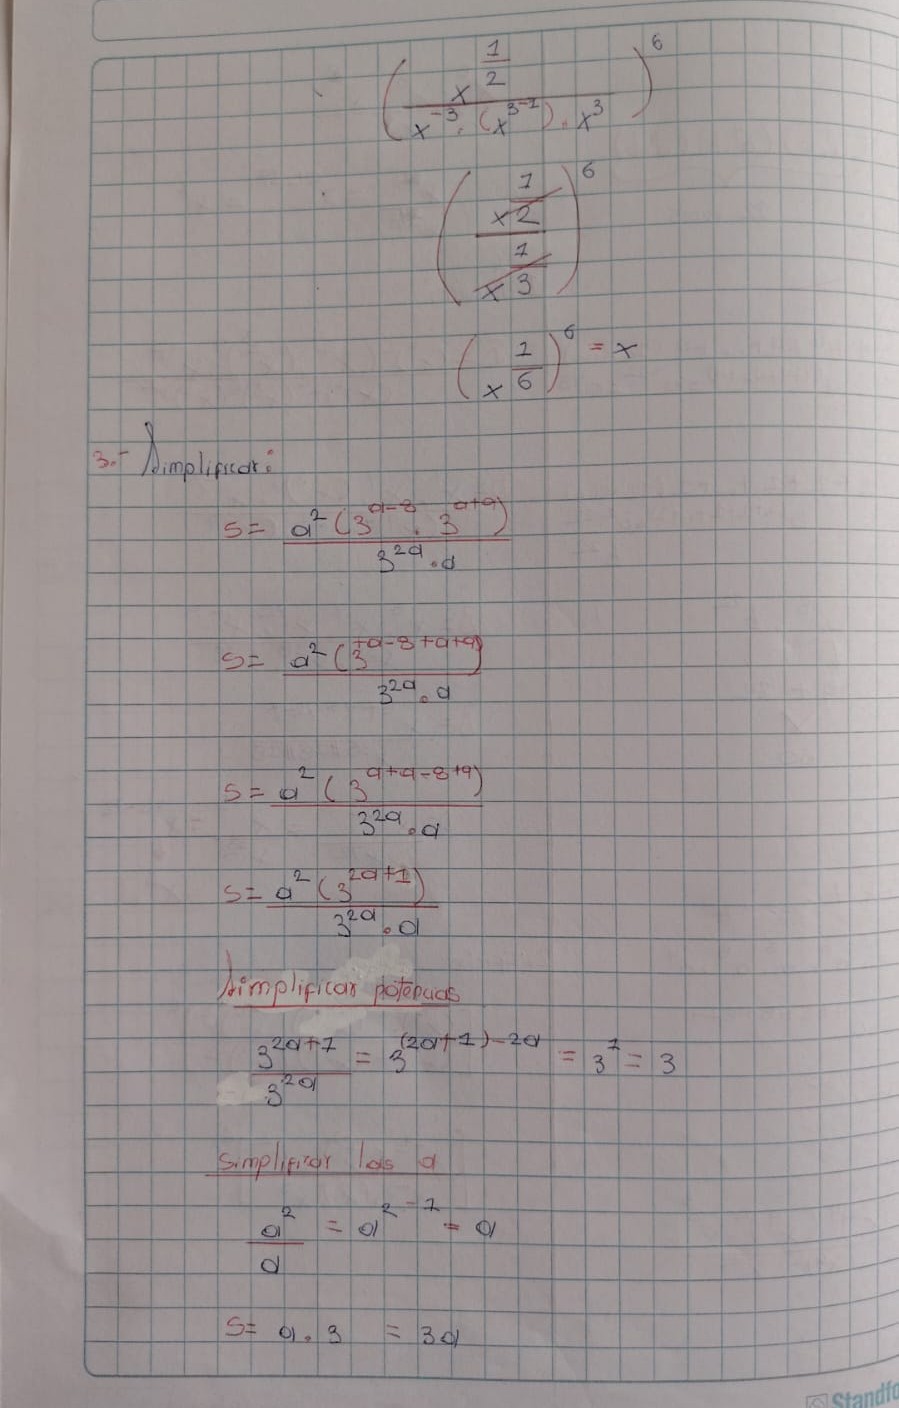 (x^(1/2) / (x^-3 · (x^(3^-1)) · x^3))^6
(x^(1/2) / x^(1/3))^6
(x^(1/6))^6 = x
3.- Simplificar:
S= a^2 (3^(a-8) · 3^(a+9)) / (3^(2a) · a)
S= a^2 (3^(+a-8+a+9)) / (3^(2a) · a)
S= a^2 (3^(a+a-8+9)) / (3^(2a) · a)
S= a^2 (3^(2a+1)) / (3^(2a) · a)
Simplificar potencias
3^(2a+1) / 3^(2a) = 3^((2a+1)-2a) = 3^1 = 3
Simplificar las a
a^2 / a = a^(2-1) = a
S= a · 3 = 3a